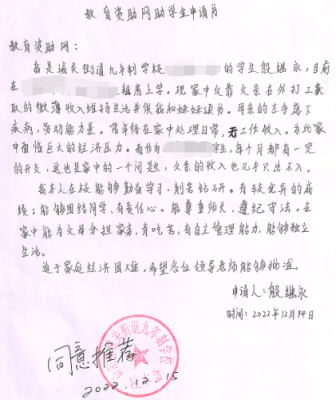 教育资助网助学生申请书
教育资助网:
我是城关街道九年制学校 的学生殷继永,目前
在 租房上学。现家中仅靠父亲在外打工获
取的微薄收入维持生活并供我和妹妹读书。母亲的左手落了
疾病,劳动能力差。常年待在家中处理日常,无工作收入。为此家
中面临巨大的经济压力。而作为 学生,每个月都有一定
的开支,这也是家中的一个问题,父亲的收入也几乎只出不入。
我本人在校能够勤奋学习,刻苦钻研。有较优异的成
绩;能够团结同学、有责任心。能尊重师长、遵纪守法。在
家中能为父母分担家务,有吃苦,有自主管理能力,能够独立
生活。
迫于家庭经济困难,希望各位领导老师能够批准。
申请人:殷继永
时间:2022年12月14日
同意推荐
2022.12.15
街道九年制学校